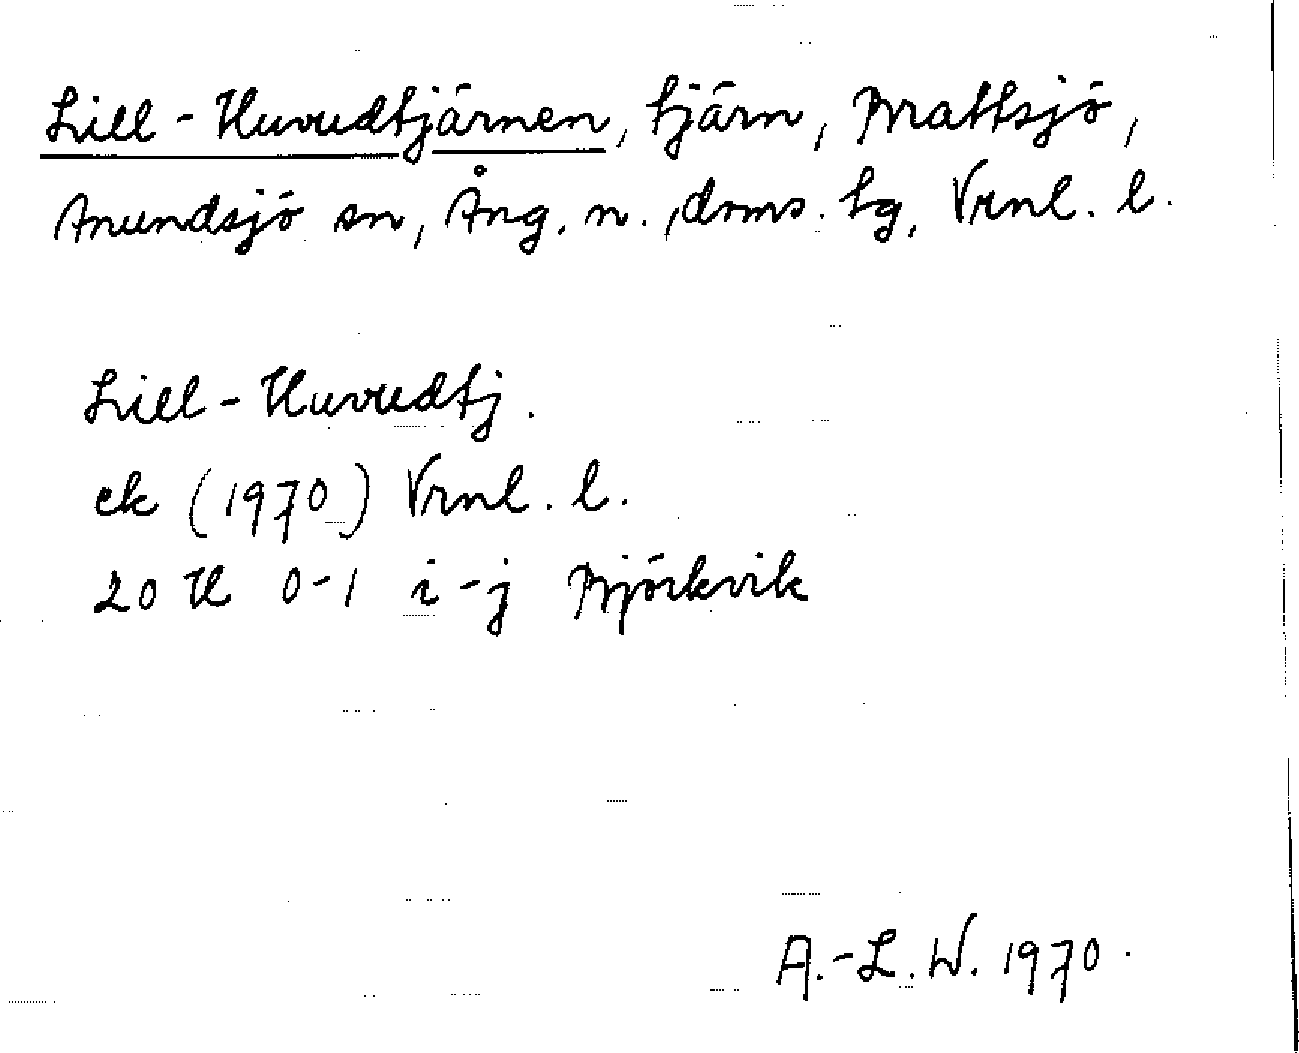 Lill-Huvudtjärnen, tjärn, Brattsjö,
Anundsjö sn, Ång. n. doms. tg, Vrnl. l.
Lill-Huvudtj.
ek (1970) Vrnl. l.
20 H 0-1 i-j Björkvik
A.-L. W. 1970.